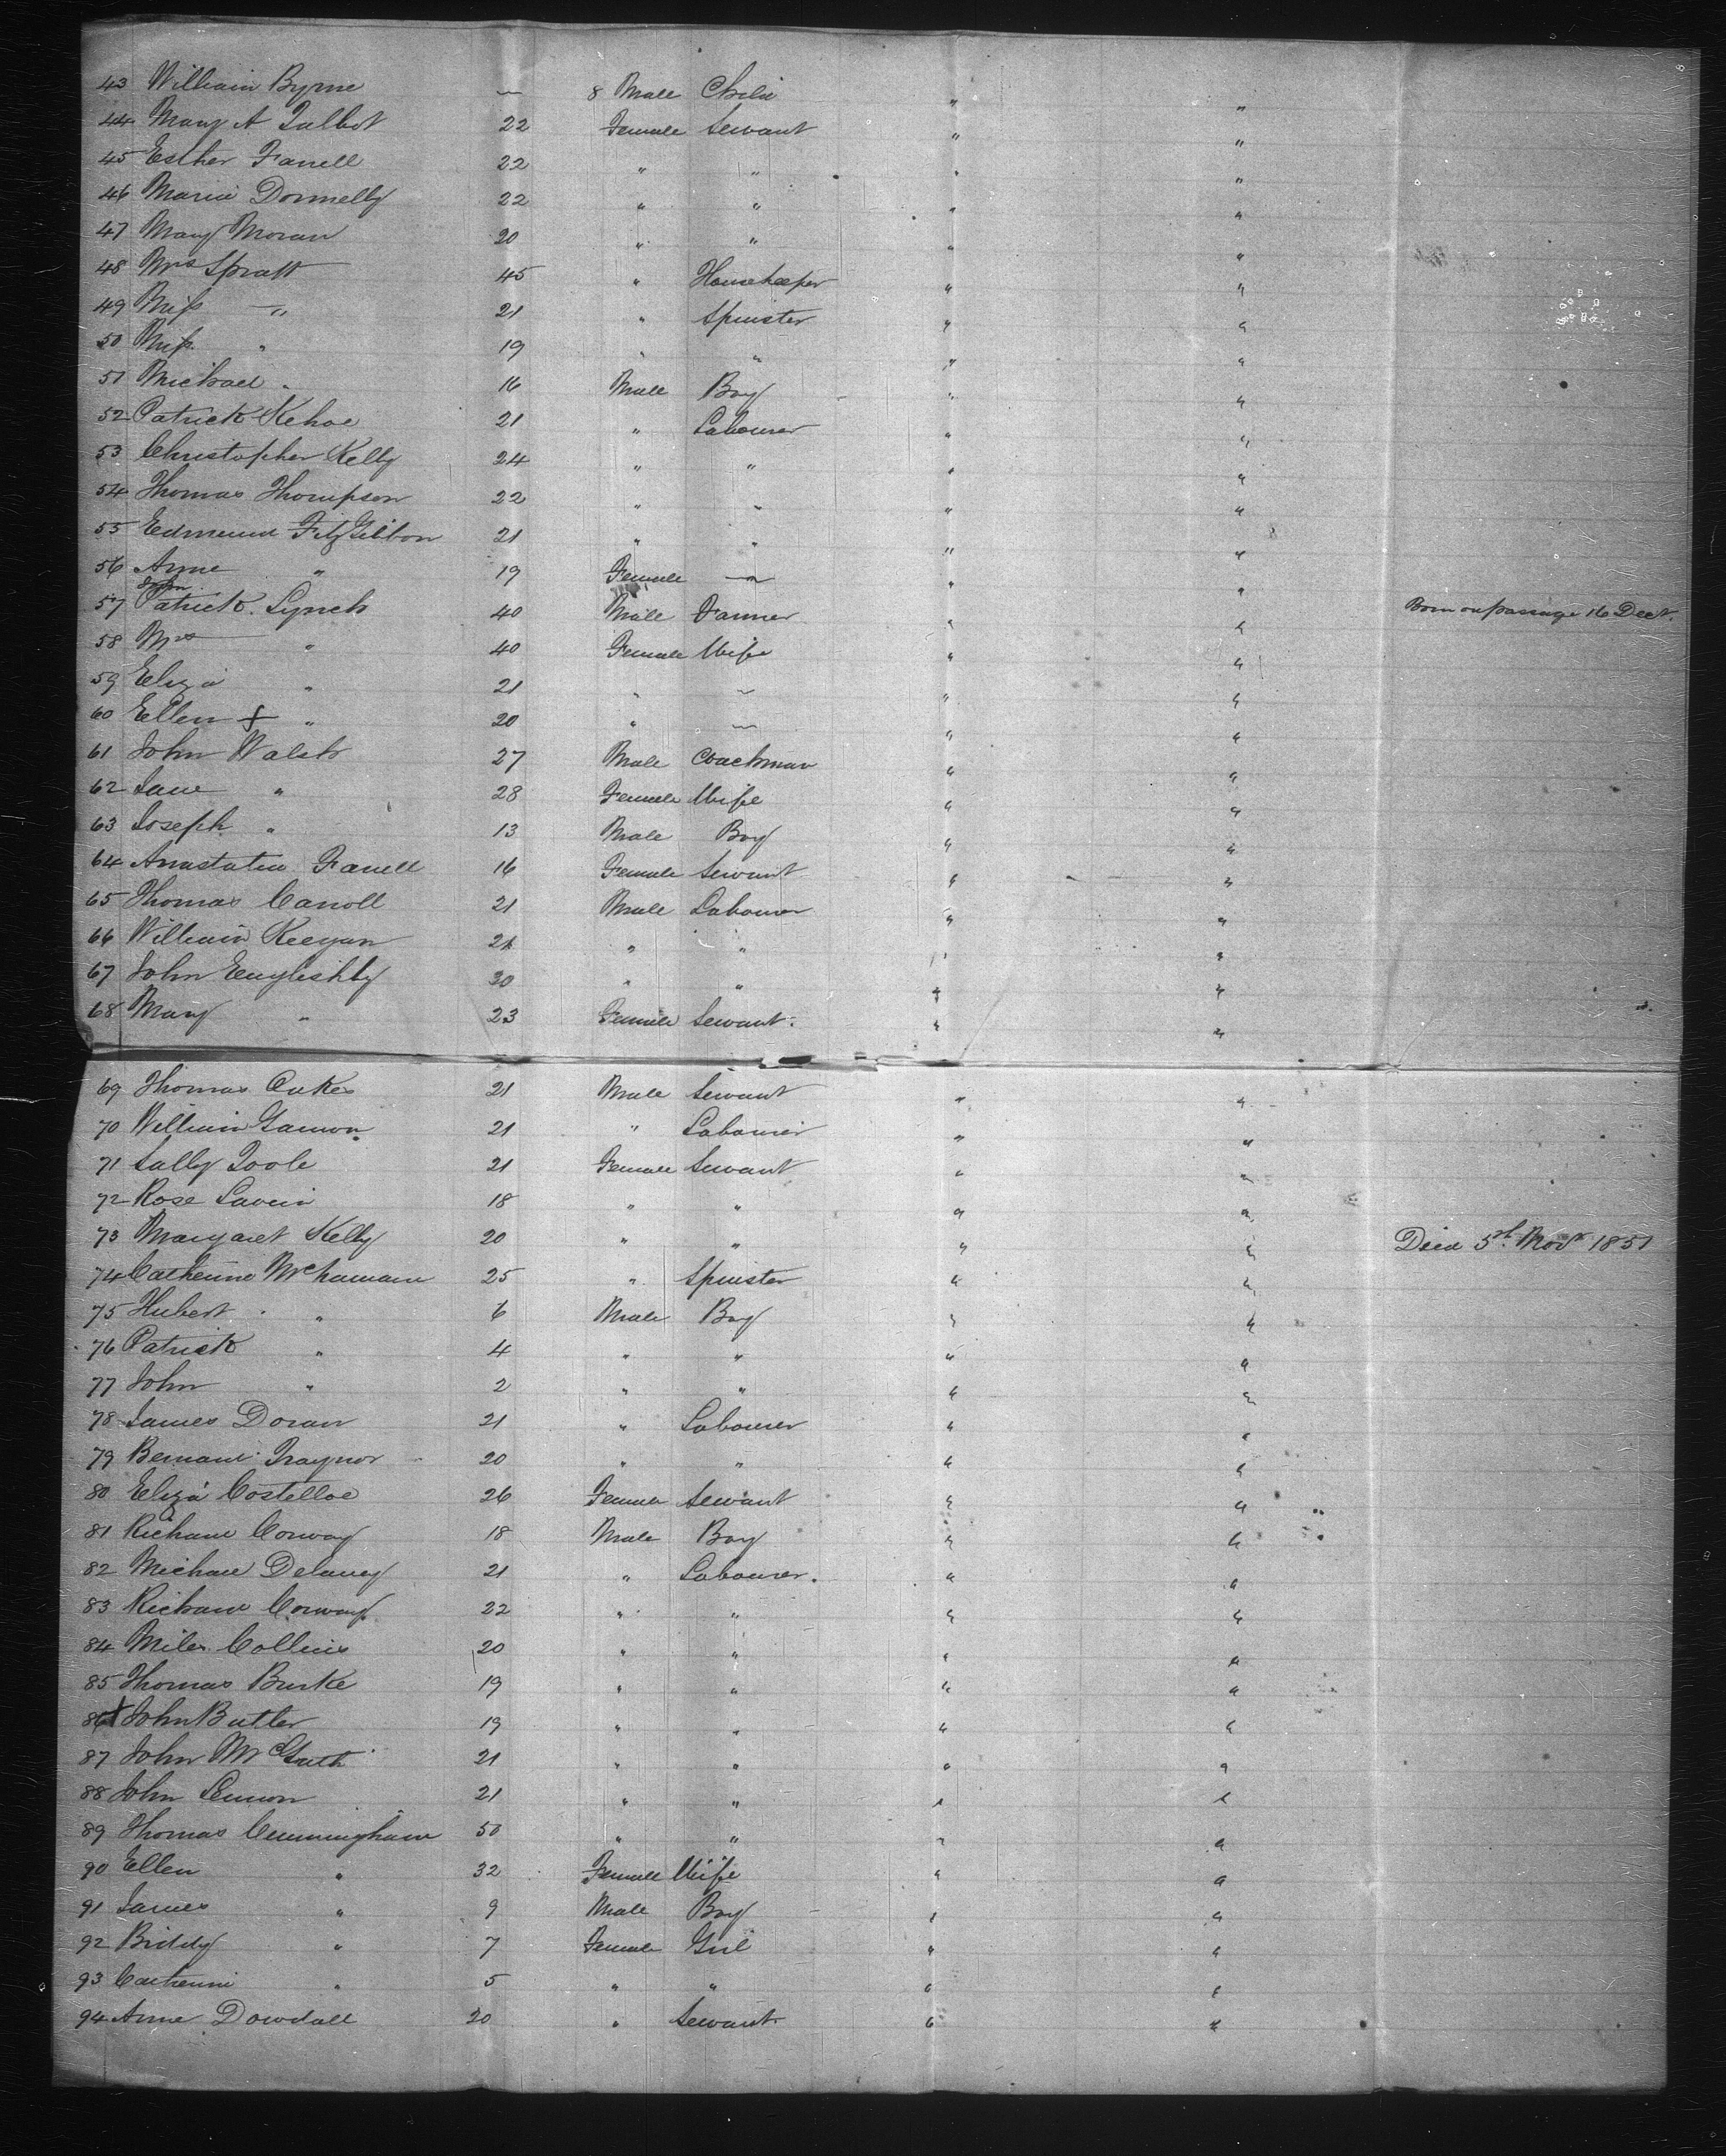 43 William Byrne — 8 Male Child " "
44 Mary A Talbot 22 Female Servant " "
45 Esther Farrell 22 " " " "
46 Maria Donnelly 22 " " " "
47 Mary Moran 20 " " " "
48 Mrs Spratt 45 " Housekeeper " "
49 Miss " 21 " Spinster " "
50 Miss " 19 " " " "
51 Michael " 16 Male Boy " "
52 Patrick Kehoe 21 " Labourer " "
53 Christopher Kelly 24 " " " "
54 Thomas Thompson 22 " " " "
55 Edmund FitzGibbon 21 " " " "
56 Anne " 19 Female — " "
John
57 Patrick Lynch 40 Male Farmer " " Born on passage 16 Dect.
58 Mrs " 40 Female Wife " "
59 Eliza " 21 " — " "
60 Ellen + " 20 " — " "
61 John Walsh 27 Male Coachman " "
62 Jane " 28 Female Wife " "
63 Joseph " 13 Male Boy " "
64 Anastatia Farrell 16 Female Servant " "
65 Thomas Carroll 21 Male Labourer " "
66 William Keegan 21 " " " "
67 John Englishby 30 " " " "
68 Mary " 23 Female Servant. " "
69 Thomas Oakes 21 Male Servant " "
70 William Gannon 21 " Labourer " "
71 Sally Toole 21 Female Servant " "
72 Rose Lavin 18 " " " "
73 Margaret Kelly 20 " " " " Died 5th Novr 1851
74 Catherine McNamara 25 " Spinster " "
75 Hubert " 6 Male Boy " "
76 Patrick " 4 " " " "
77 John " 2 " " " "
78 James Doran 21 " Labourer " "
79 Bernard Traynor 20 " " " "
80 Eliza Costelloe 26 Female Servant " "
81 Richard Conway 18 Male Boy " "
82 Michael Delaney 21 " Labourer. " "
83 Richard Conway 22 " " " "
84 Miles Collins 20 " " " "
85 Thomas Burke 19 " " " "
86 + John Butler 19 " " " "
87 John McGrath 21 " " " "
88 John Lennon 21 " " " "
89 Thomas Cunningham 50 " " " "
90 Ellen " 32 Female Wife " "
91 James " 9 Male Boy " "
92 Biddy " 7 Female Girl " "
93 Catherine " 5 " " " "
94 Anne Dowdall 20 " Servant " "